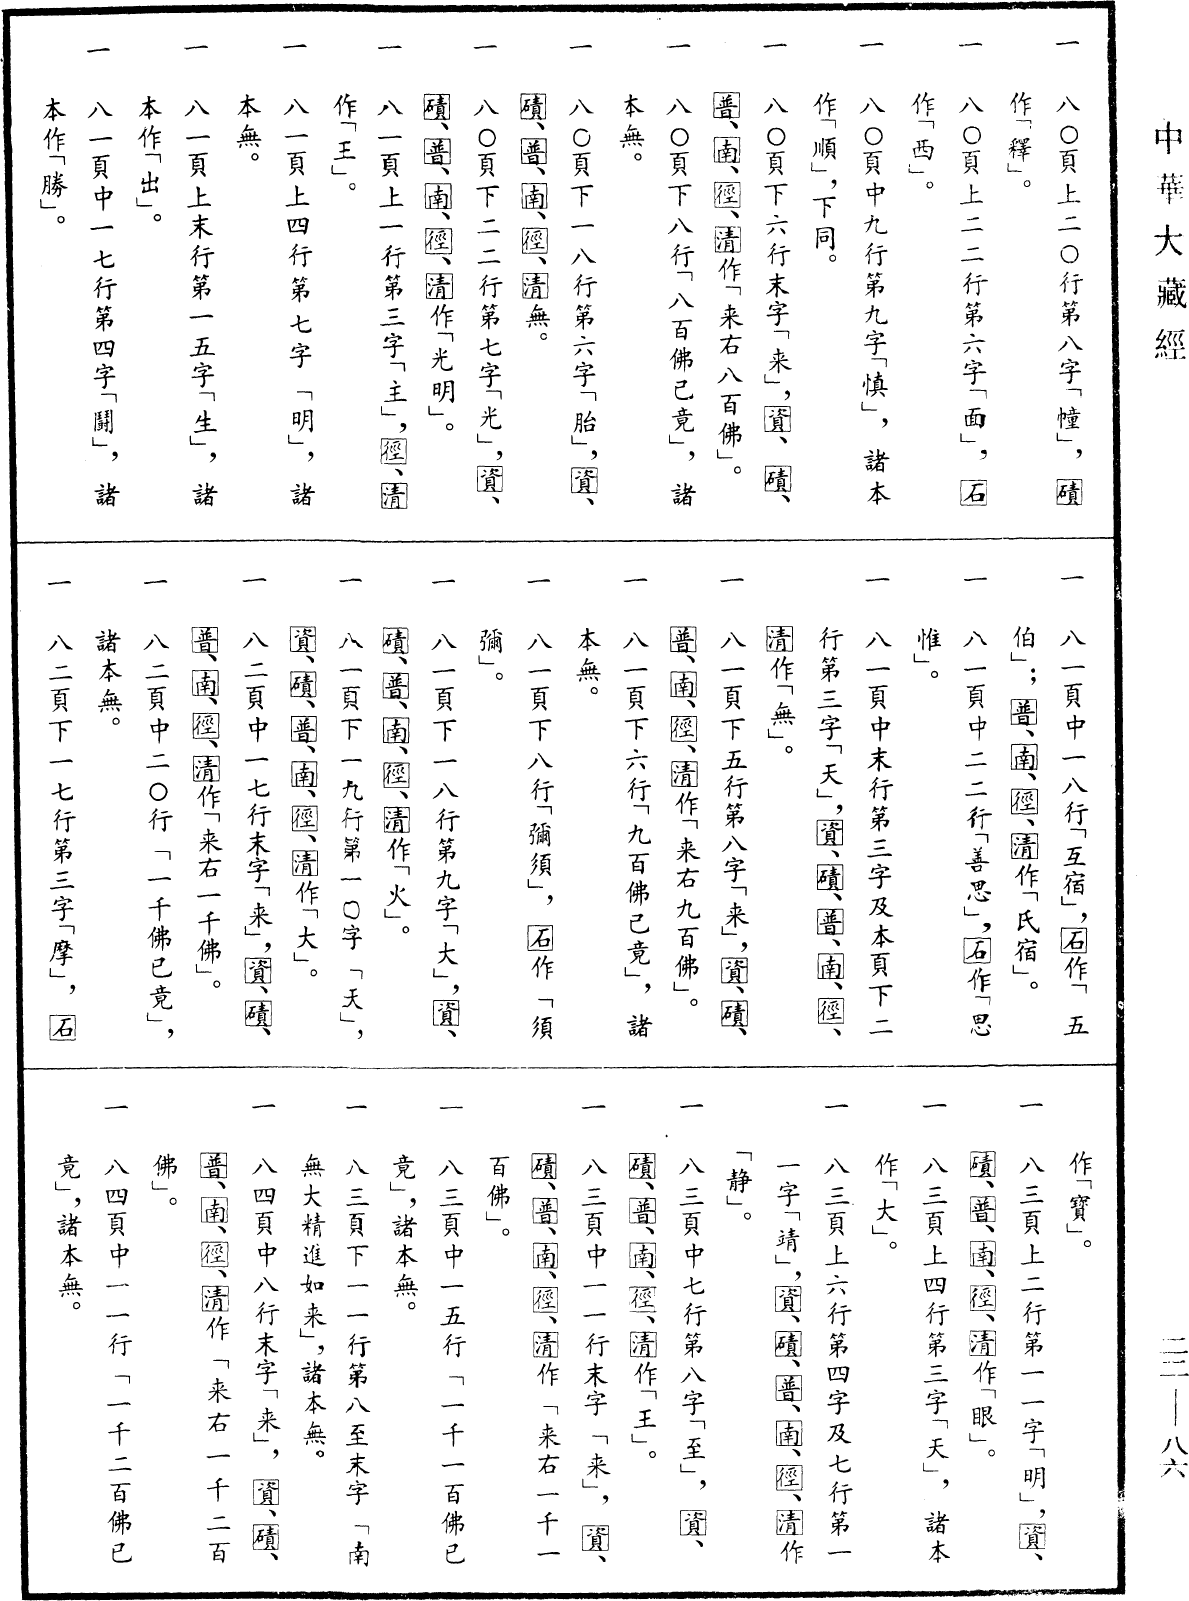 中華大藏經
二二—八六
一　八〇頁上二〇行第八字「幢」，磧
作「釋」。
一　八〇頁上二二行第六字「面」，石
作「西」。
一　八〇頁中九行第九字「慎」，諸本
作「順」，下同。
一　八〇頁下六行末字「来」，資、磧、
普、南、徑、清作「来右八百佛」。
一　八〇頁下八行「八百佛已竟」，諸
本無。
一　八〇頁下一八行第六字「胎」，資、
磧、普、南、徑、清無。
一　八〇頁下二二行第七字「光」，資、
磧、普、南、徑、清作「光明」。
一　八一頁上一行第三字「主」，徑、清
作「王」。
一　八一頁上四行第七字「明」，諸
本無。
一　八一頁上末行第一五字「生」，諸
本作「出」。
一　八一頁中一七行第四字「鬪」，諸
本作「勝」。
一　八一頁中一八行「互宿」，石作「五
伯」；普、南、徑、清作「氏宿」。
一　八一頁中二二行「善思」，石作「思
惟」。
一　八一頁中末行第三字及本頁下二
行第三字「天」，資、磧、普、南、徑、
清作「無」。
一　八一頁下五行第八字「来」，資、磧、
普、南、徑、清作「来右九百佛」。
一　八一頁下六行「九百佛已竟」，諸
本無。
一　八一頁下八行「彌須」，石作「須
彌」。
一　八一頁下一八行第九字「大」，資、
磧、普、南、徑、清作「火」。
一　八一頁下一九行第一〇字「天」，
資、磧、普、南、徑、清作「大」。
一　八二頁中一七行末字「来」，資、磧、
普、南、徑、清作「来右一千佛」。
一　八二頁中二〇行「一千佛已竟」，
諸本無。
一　八二頁下一七行第三字「摩」，石
作「寶」。
一　八三頁上二行第一一字「明」，資、
磧、普、南、徑、清作「眼」。
一　八三頁上四行第三字「天」，諸本
作「大」。
一　八三頁上六行第四字及七行第一
一字「靖」，資、磧、普、南、徑、清作
「静」。
一　八三頁中七行第八字「至」，資、
磧、普、南、徑、清作「王」。
一　八三頁中一一行末字「来」，資、
磧、普、南、徑、清作「来右一千一
百佛」。
一　八三頁中一五行「一千一百佛已
竟」，諸本無。
一　八三頁下一一行第八至末字「南
無大精進如来」，諸本無。
一　八四頁中八行末字「来」，資、磧、
普、南、徑、清作「来右一千二百
佛」。
一　八四頁中一一行「一千二百佛已
竟」，諸本無。